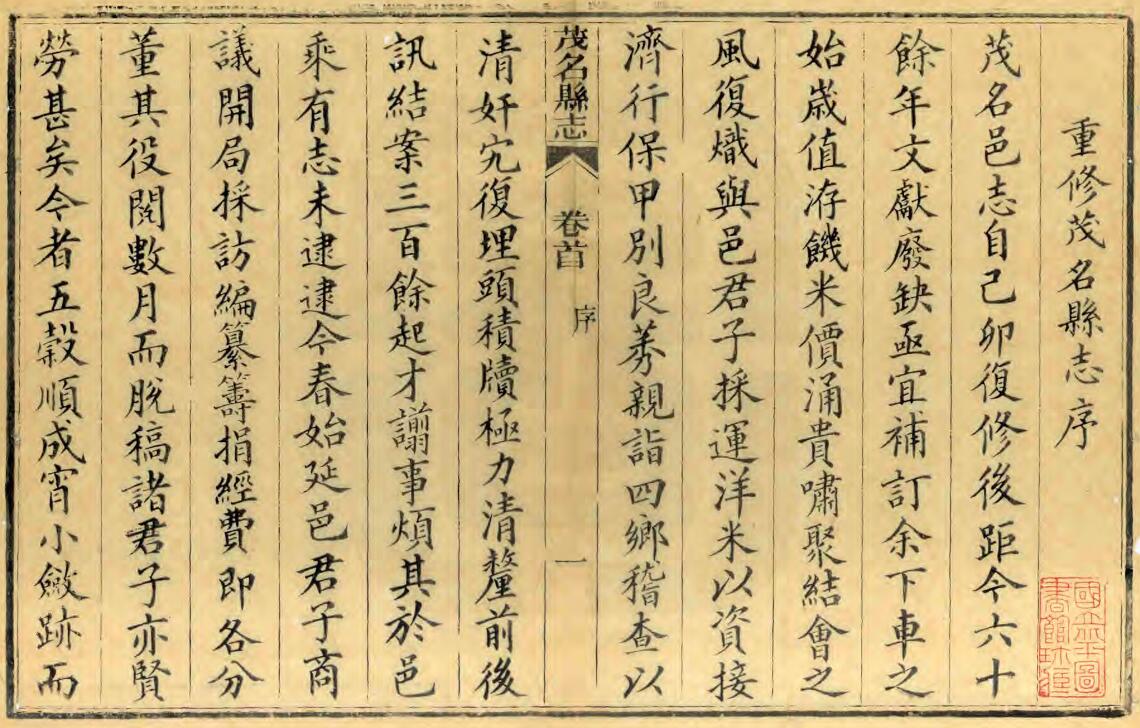 重修茂名縣志序
茂名邑志自己卯復修後距今六十
餘年文獻廢缺亟宜補訂余下車之
始歲值洊饑米價涌貴嘯聚結會之
風復熾與邑君子採運洋米以資接
濟行保甲別良莠親詣四鄉稽查以
茂名縣志
卷首
序
一
清奸宄復埋頭積牘極力清釐前後
訊結案三百餘起才譾事煩其於邑
乘有志未逮逮今春始延邑君子商
議開局採訪編纂籌捐經費即各分
董其役閱數月而脫稿諸君子亦賢
勞甚矣今者五穀順成宵小斂跡而